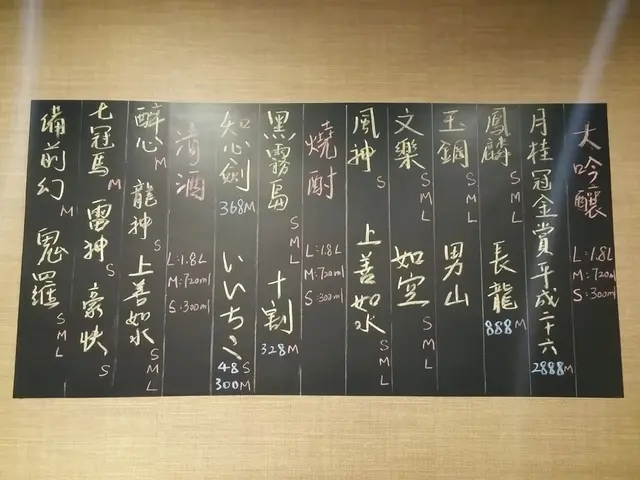 大吟釀 L:1.8L M:720ml S:300ml
月桂冠金賞平成二十六 2888M
鳳麟 S 長龍 888M
玉鋼 S M L 男山
文樂 S M L 如空 S M L
風神 S 上善如水 S M L
燒酎 L:1.8L M:720ml S:300ml
黑霧島 S M L 十割 328M
知心劍 368M いいちこ 48S 300M
清酒 L:1.8L M:720ml S:300ml
醉心 M 龍神 S 上善如水 S M L
七冠馬 M 雷神 S 豪快 S
備前幻 M 鬼羅 S M L